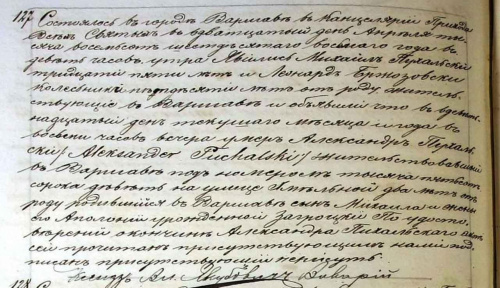 127 Состоялось въ городѣ Варшавѣ въ Канцеляріи Прихода
Всѣхъ Святыхъ въ двадцатый день Апрѣля ты-
сяча восемьсотъ шестьдесятаго восьмаго года въ
девять часовъ утра Явились Михаилъ Пухальскій
тридцати пяти лѣтъ и Леонардъ
лѣтъ отъ роду житель-
ствующіе въ Варшавѣ и объявили что въ
надцатый день текущаго мѣсяца и года въ
восемь часовъ вечера умеръ Александръ Пухаль-
скій /Aleksander Puchalski/ жительствовавшій
въ Варшавѣ подъ номеромъ тысяча пятьсотъ
сорокъ девять на улицѣ два лѣтъ отъ
роду родившійся въ Варшавѣ сынъ Михаила и жены
его Аполоніи урожденной Загроцкій По удосто-
вѣреніи окончины Александра Пухальскаго актъ
сей прочитанъ присутствующимъ нами под-
писанъ присутствующій неграмотны
Ксендзъ Вл. Якубовичъ Викарій
128